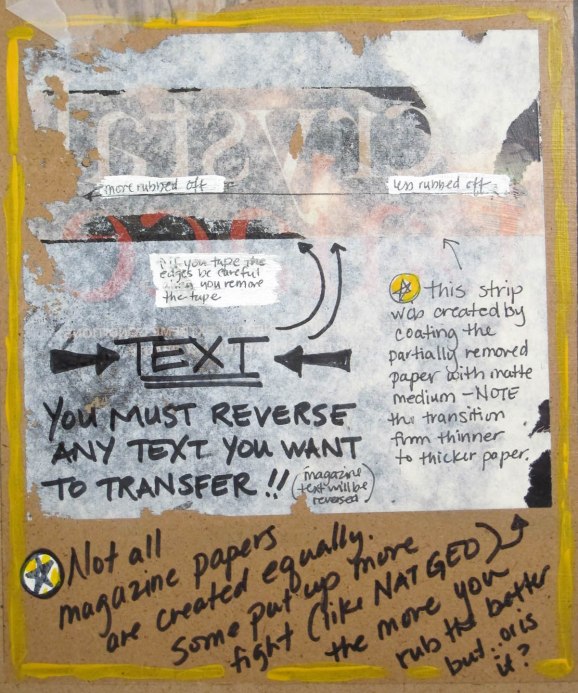 crystal
more rubbed off
less rubbed off
if you tape the
edges be careful
when you remove
the tape
TEXT
YOU MUST REVERSE
ANY TEXT YOU WANT
TO TRANSFER!!
(magazine
text will be
reversed)
this strip
was created by
coating the
partially removed
paper with matte
medium - NOTE
the transition
from thinner
to thicker paper.
Not all
magazine papers
are created equally.
Some put up more
fight (like NAT GEO)
the more you
rub the better
but.. or is
it?